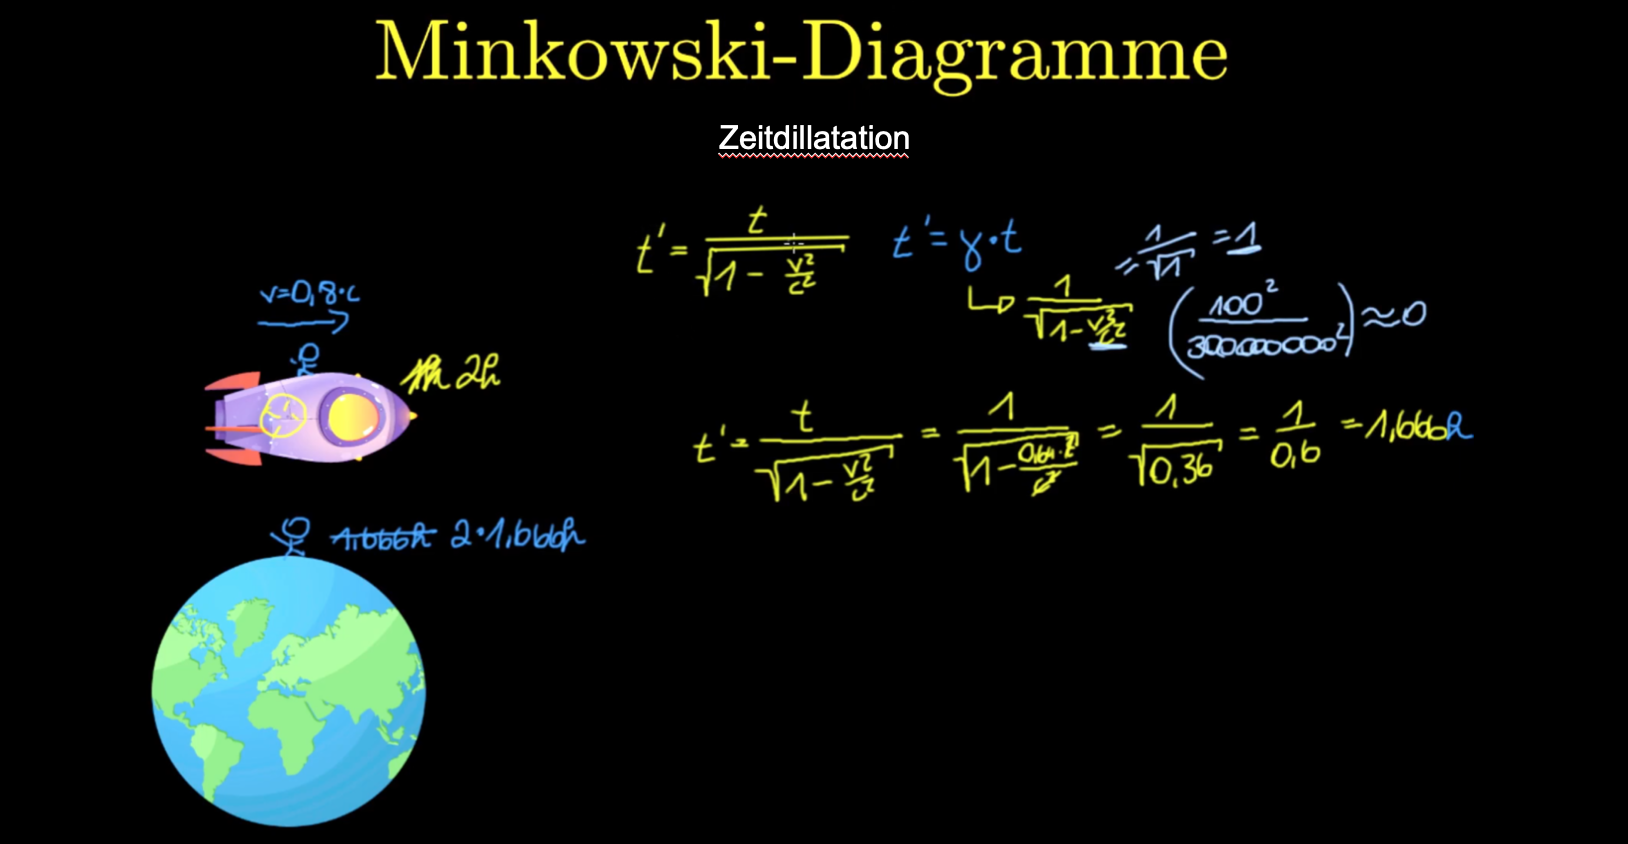 Minkowski-Diagramme
Zeitdillatation
t' = t / √(1 - v²/c²)
t' = γ · t
↳ 1 / √(1 - v²/c²)
= 1/√1 = 1
(100² / 300000000²) ≈ 0
v=0,8·c
2h
t' = t / √(1 - v²/c²) = 1 / √(1 - 0,64·c²/c²) = 1/√0,36 = 1/0,6 = 1,666h
1,666h 2·1,666h